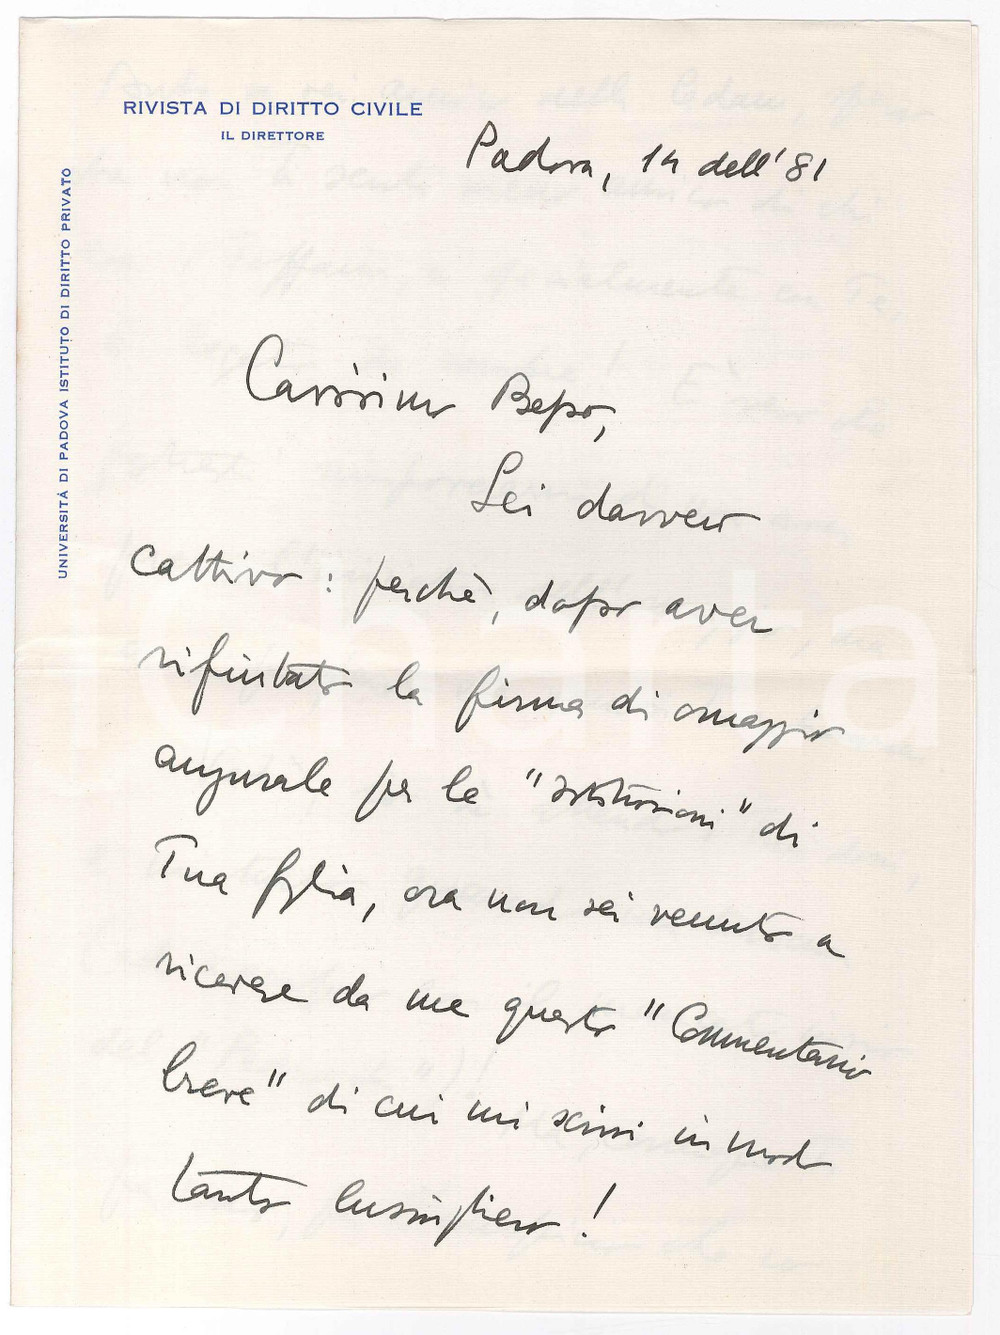 RIVISTA DI DIRITTO CIVILE
IL DIRETTORE
UNIVERSITÀ DI PADOVA ISTITUTO DI DIRITTO PRIVATO
Padova, 14 dell'81
Carissimo Beppo,
Sei davvero
cattivo: perchè, dopo aver
rifiutato la firma di omaggio
augurale per le "Istituzioni" di
Tua figlia, ora non sei venuto a
ricevere da me questo "Commentario
breve" di cui mi scrivi in modo
tanto lusinghiero!